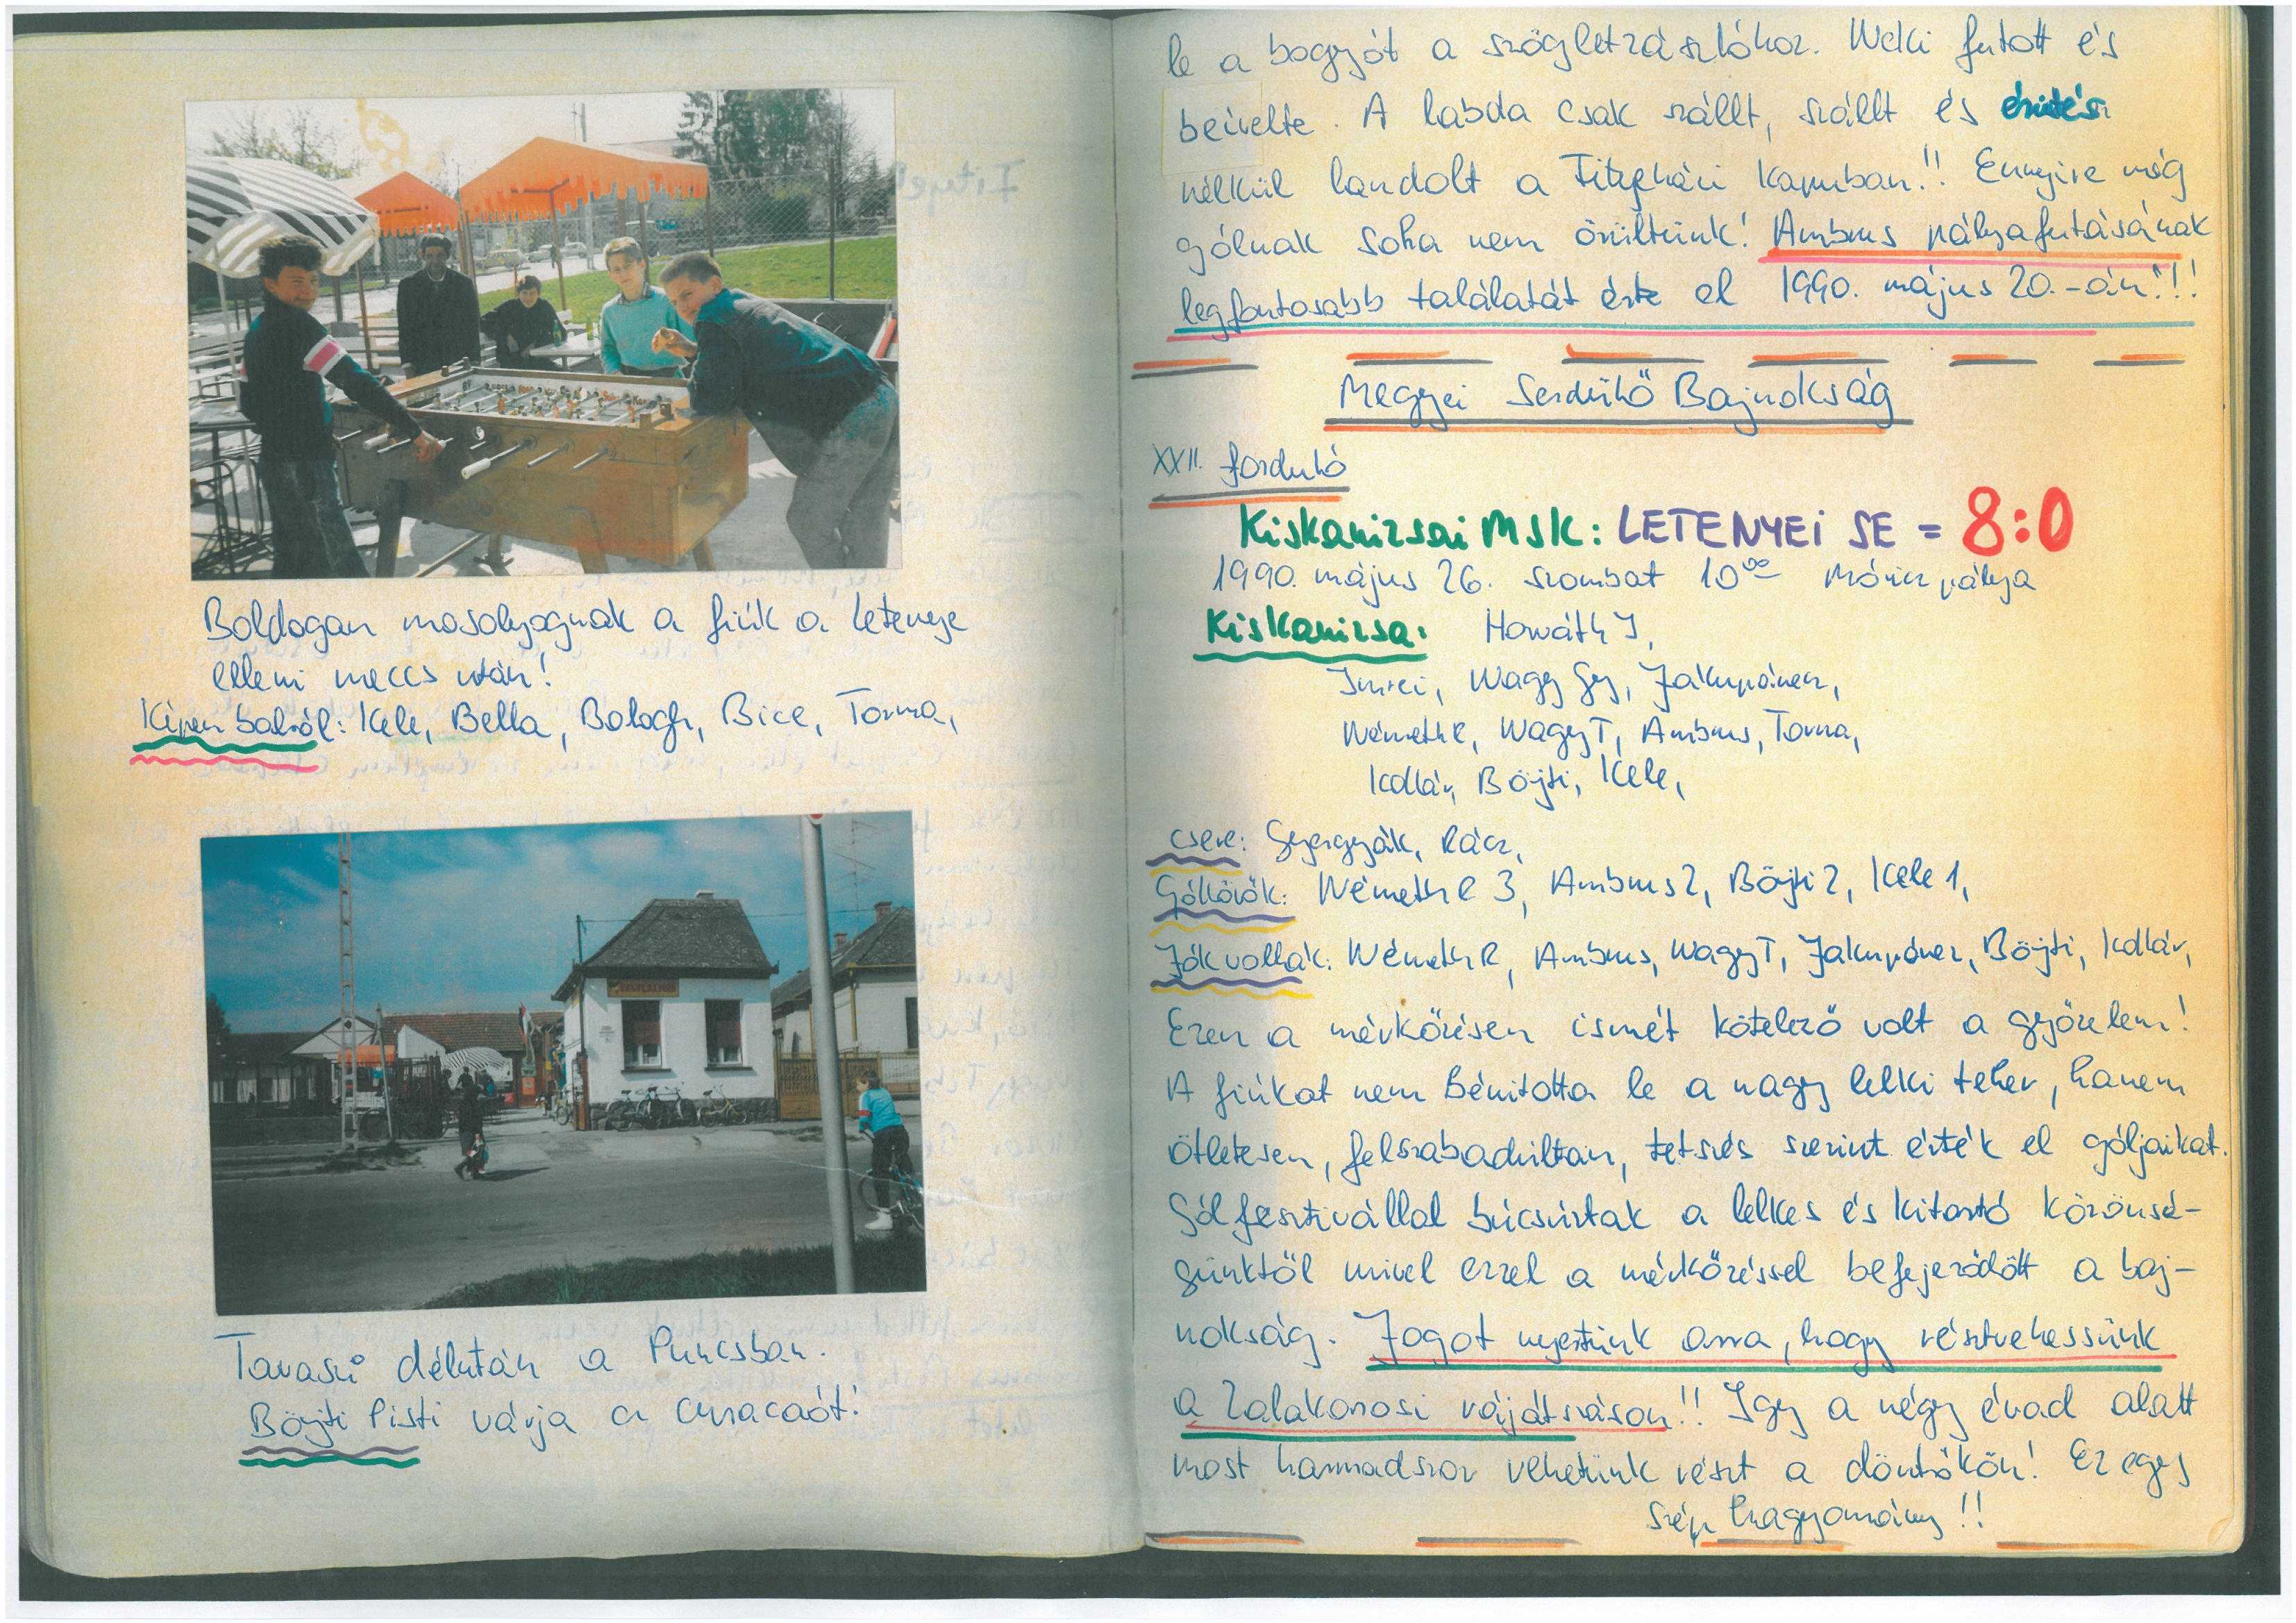 Boldogan mosolyognak a fiúk a Letenye
elleni meccs után!
Képen balról: Kele, Bella, Balogh, Bice, Torma,
Tavaszi délután a Puncsban.
Böjti Pisti várja a curacaót!
le a bogyót a szögletzászlóhoz. Neki futott és
beívelte. A labda csak szállt, szállt és érintés
nélkül landolt a Fityeházi kapuban!! Ennyire még
gólnak soha nem örültünk! Ambrus pályafutásának
legfontosabb találatát érte el 1990. május 20.-án!!!
Megyei Serdülő Bajnokság
XXII. forduló
Kiskanizsai MSK: LETENYEI SE = 8:0
1990. május 26. szombat 10⁰⁰ Móricz pálya
Kiskanizsa: Horváth J,
Imrei, Nagy Gy, Jákupánecz,
Németh R, Nagy T, Ambrus, Torma,
Kollár, Böjti, Kele,
csere: Gyergyák, Rácz,
Góllövők: Németh R 3, Ambrus 2, Böjti 2, Kele 1,
Jók voltak: Németh R, Ambrus, Nagy T, Jakupánecz, Böjti, Kollár,
Ezen a mérkőzésen ismét kötelező volt a győzelem!
A fiúkat nem bénitotta le a nagy lelki teher, hanem
ötletesen, felszabadultan, tetszés szerint érték el góljaikat.
Gólfesztivállal búcsúztak a lelkes és kitartó közönsé-
günktől mivel ezzel a mérkőzéssel befejeződött a baj-
nokság. Jogot nyertünk arra, hogy résztvehessünk
a Zalakarosi rájátszáson!! Igy a négy évad alatt
most harmadszor vehetünk részt a döntőkön! Ez egy
szép hagyomány!!